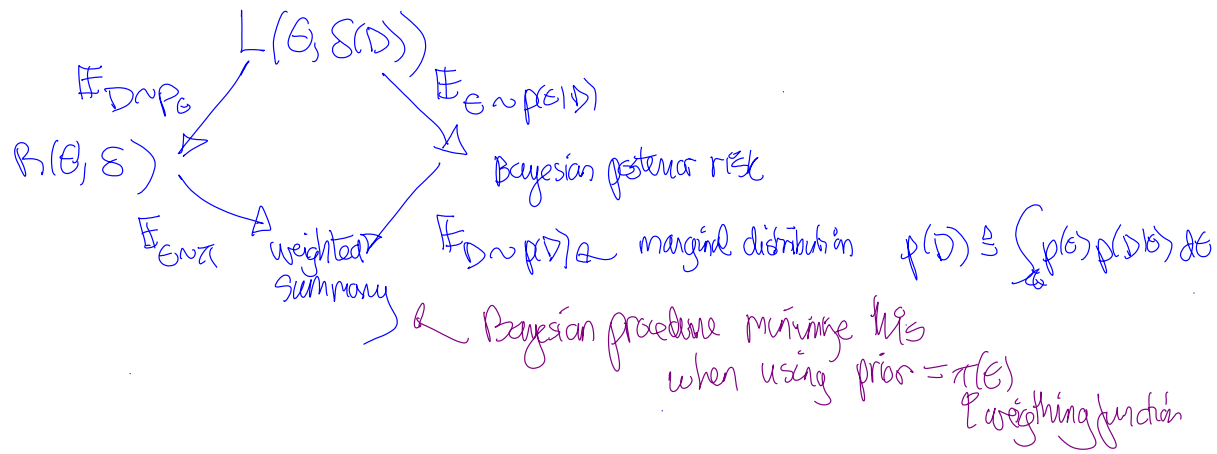 L(θ, δ(D))
𝔼_{D∼p_θ}
𝔼_{θ∼p(θ|D)}
R(θ, δ)
Bayesian posterior risk
𝔼_{θ∼π}
weighted
summary
𝔼_{D∼p(D)} ← marginal distribution p(D) ≜ ∫_Θ p(θ) p(D|θ) dθ
Bayesian procedure minimize this
when using prior = π(θ)
weigthing function